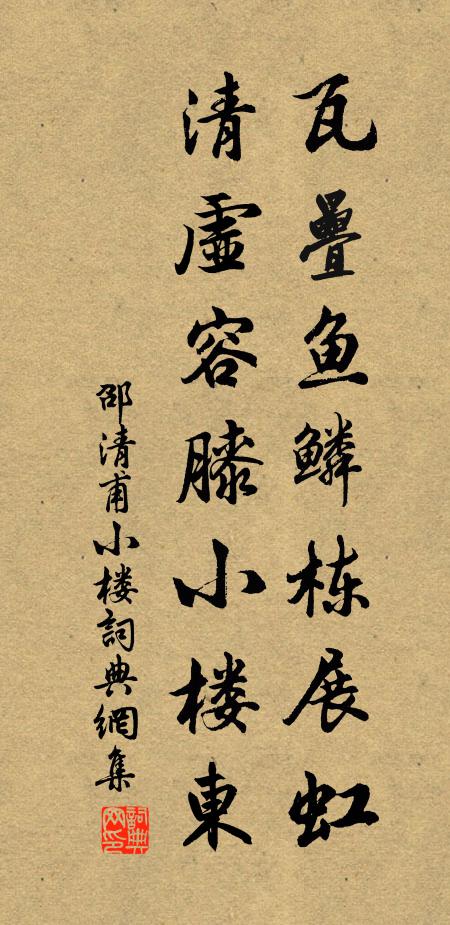 瓦疊鱼鳞栋展虹
清虚容膝小楼東
邵清甫小楼詞典網集
詞典网印